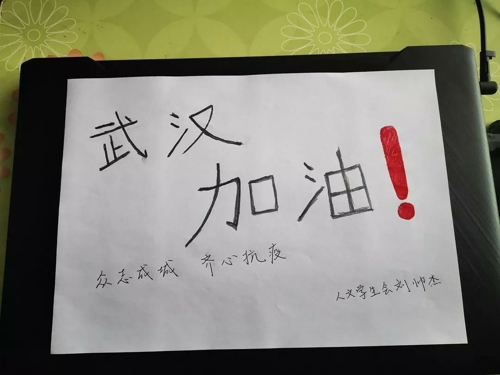 武汉
加油!
众志成城 齐心抗疫
人文学生会刘帅杰